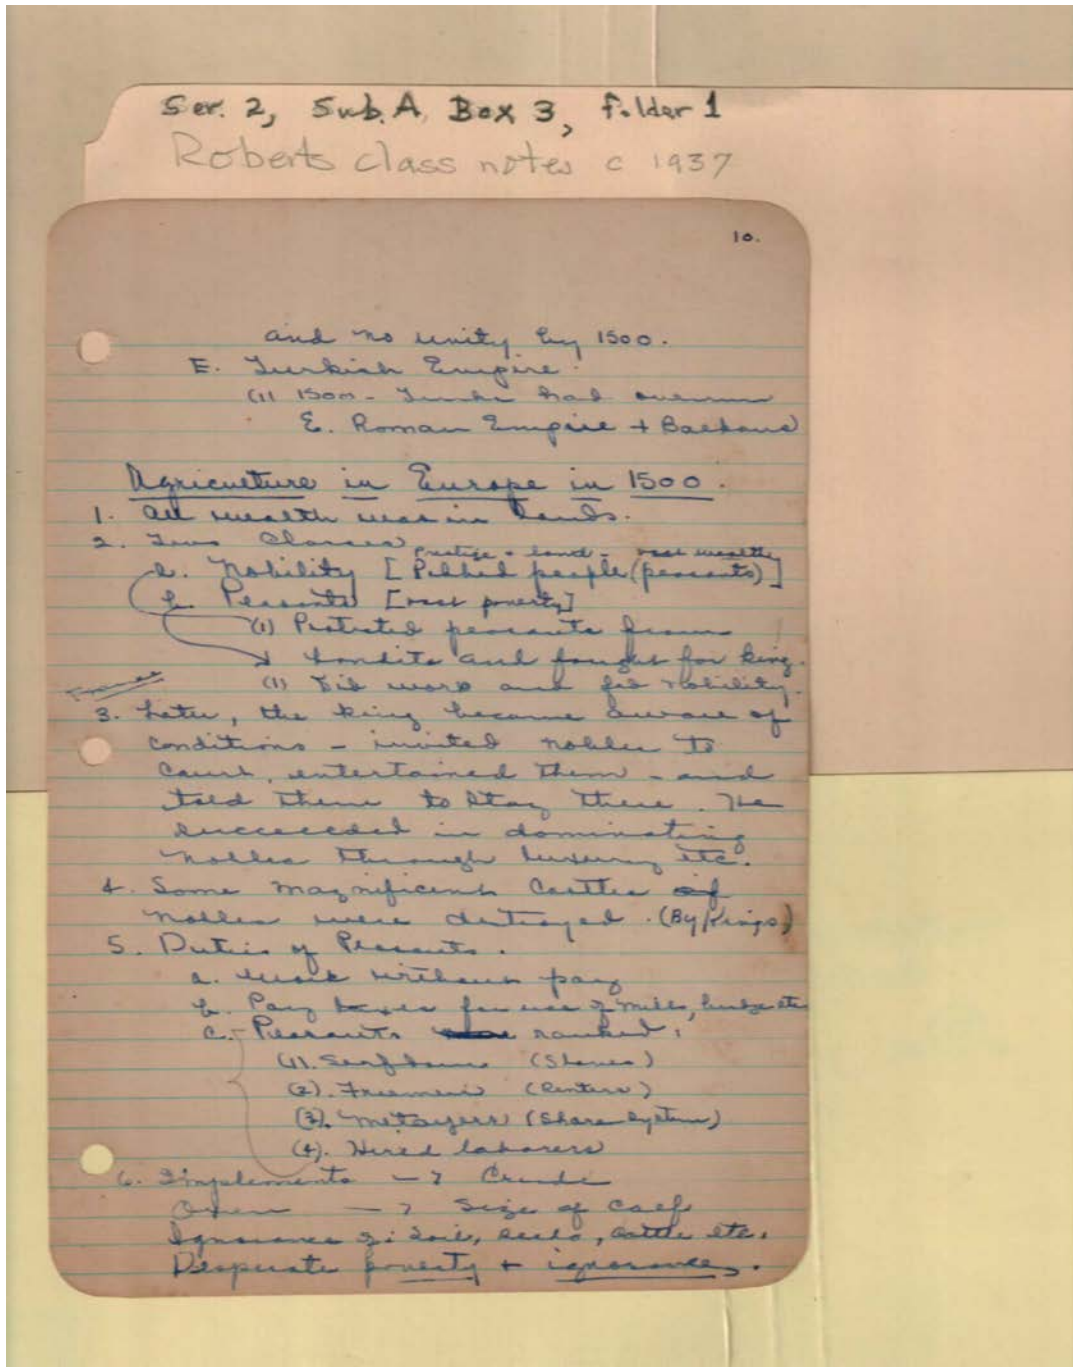 Ser. 2, Sub. A, Box 3, folder 1
Roberts class notes c 1937
10.
and no unity by 1500.
E. Turkish Empire.
(1) 1500 - Turks had overrun
E. Roman Empire + Balkans
Agriculture in Europe in 1500.
1. All wealth was in lands.
2. Two Classes
prestige - land - vast wealth
a. Nobility [Robbed people (peasants)]
b. Peasants [vast poverty]
(1) Protected peasants from
bandits and fought for king.
(1) Did work and fed nobility.
3. Later, the king became aware of
conditions - invited nobles to
court, entertained them - and
told them to stay there. He
succeeded in dominating
nobles through luxury etc.
4. Some magnificent castles of
nobles were destroyed. (By Kings)
5. Duties of Peasants.
a. Work without pay
b. Pay taxes for use of mills, bridge etc
c. Peasants ranked:
(1). Serfdom (Slaves)
(2). Freemen (Renters)
(3). Metayers (Share System)
(4). Hired laborers
6. Implements → Crude
Oxen → Size of calf
Ignorance of: Soil, seeds, cattle etc.
Desperate poverty + ignorance.